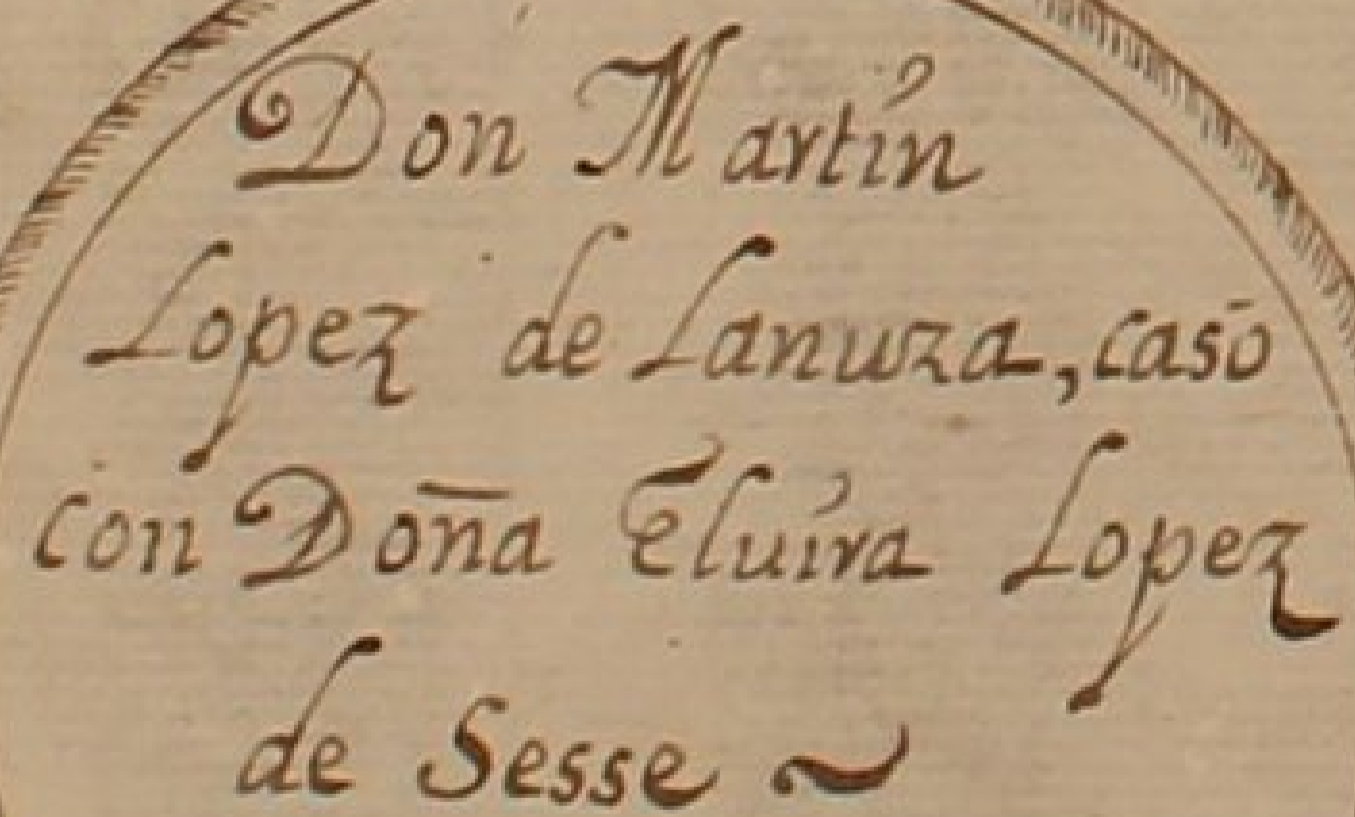 Don Martin
Lopez de Lanuza, casò
con Doña Eluira Lopez
de Sesse ~